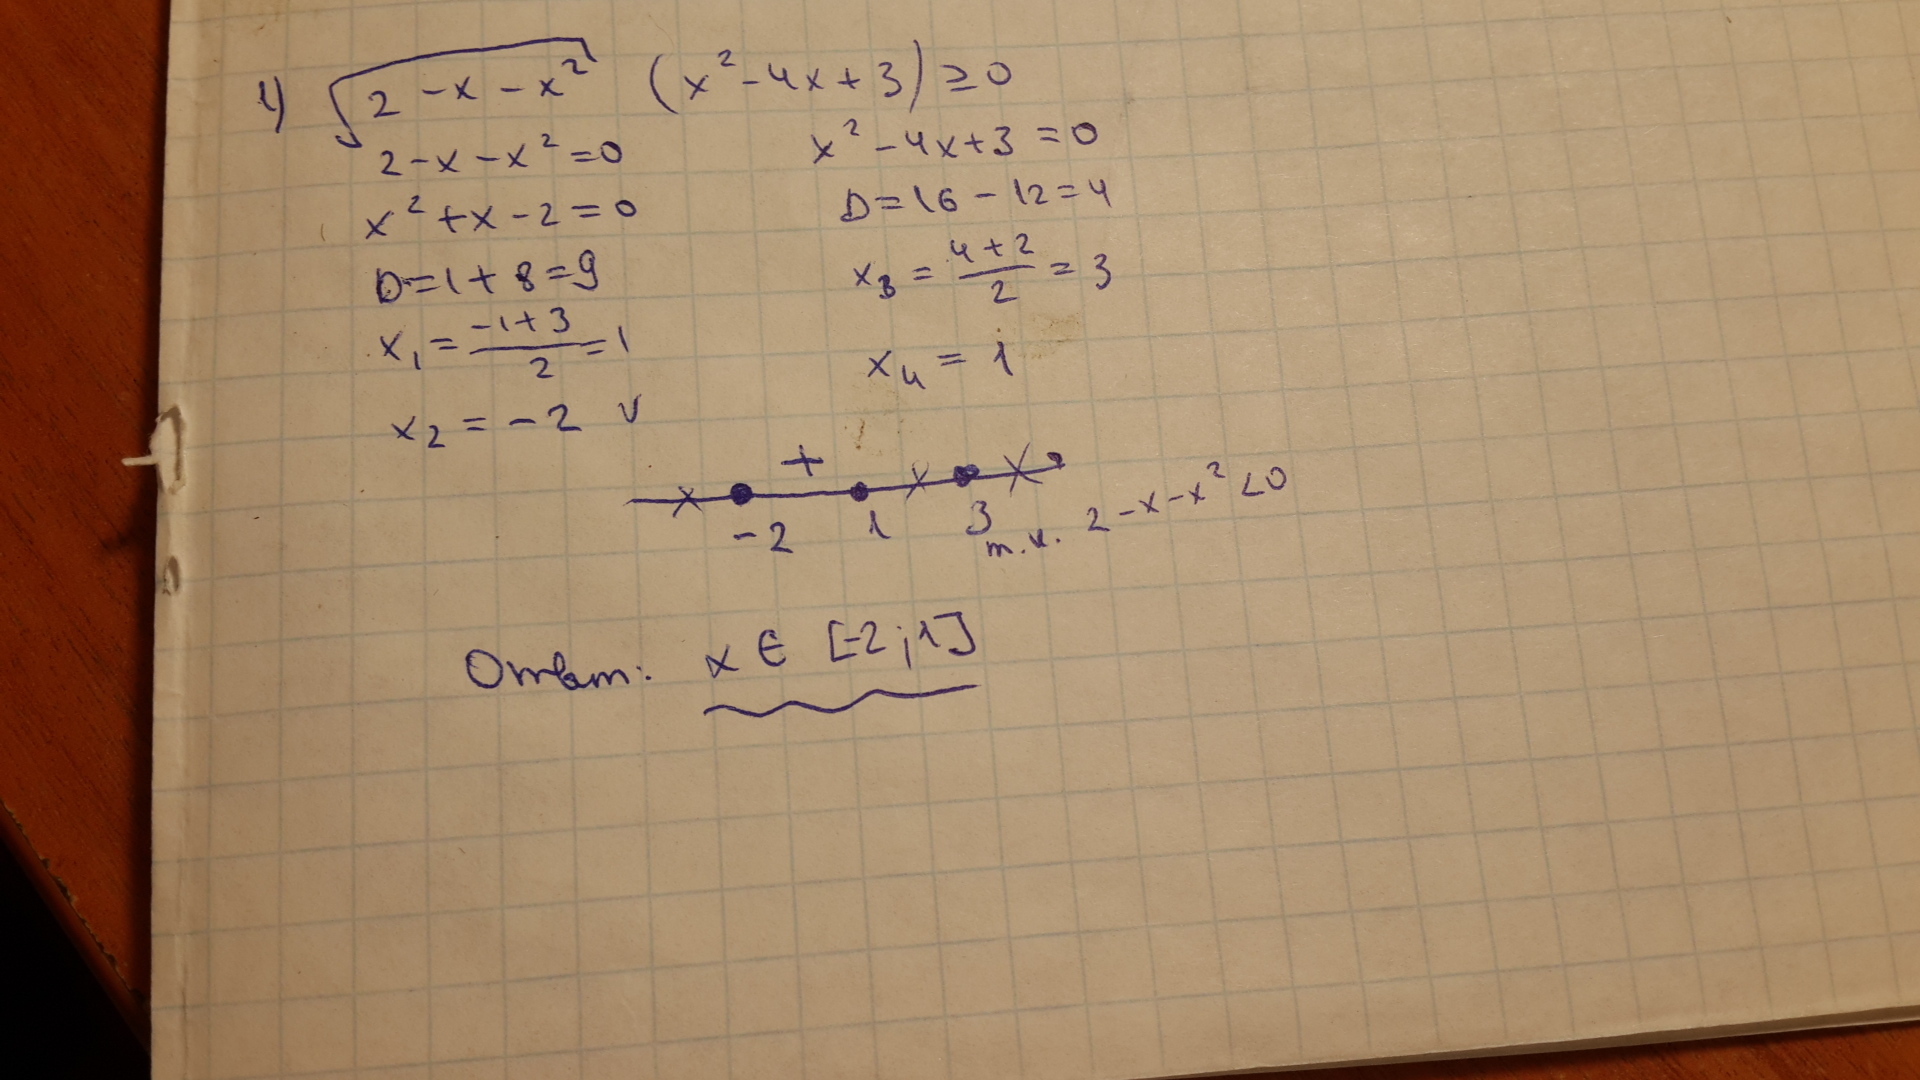 1) √(2-x-x²) (x²-4x+3) ≥ 0
2-x-x²=0
x²+x-2=0
D=1+8=9
x₁=(-1+3)/2=1
x₂=-2 v
x²-4x+3=0
D=16-12=4
x₃=(4+2)/2=3
x₄=1
+
-2 1 3
т.к. 2-x-x²<0
Ответ: x ∈ [-2;1]